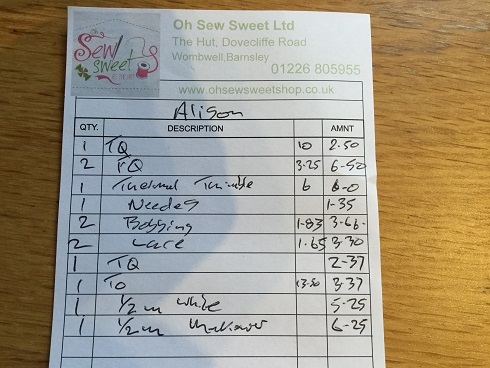 Oh Sew Sweet Ltd
The Hut, Dovecliffe Road
Wombwell, Barnsley
01226 805955
www.ohsewsweetshop.co.uk
Sew
sweet
Alison
QTY. DESCRIPTION AMNT
1 TQ 10 2.50
2 FQ 3.25 6-50
1 Thermal Thimble 6 6-0
1 Needles 1-35
2 Bobbins 1-83 3-66-
2 Lace 1.65 3-30
1 TQ 2-37
1 TQ 13.50 3-37
1 1/2 m white 5-25
1 1/2 m 6-25